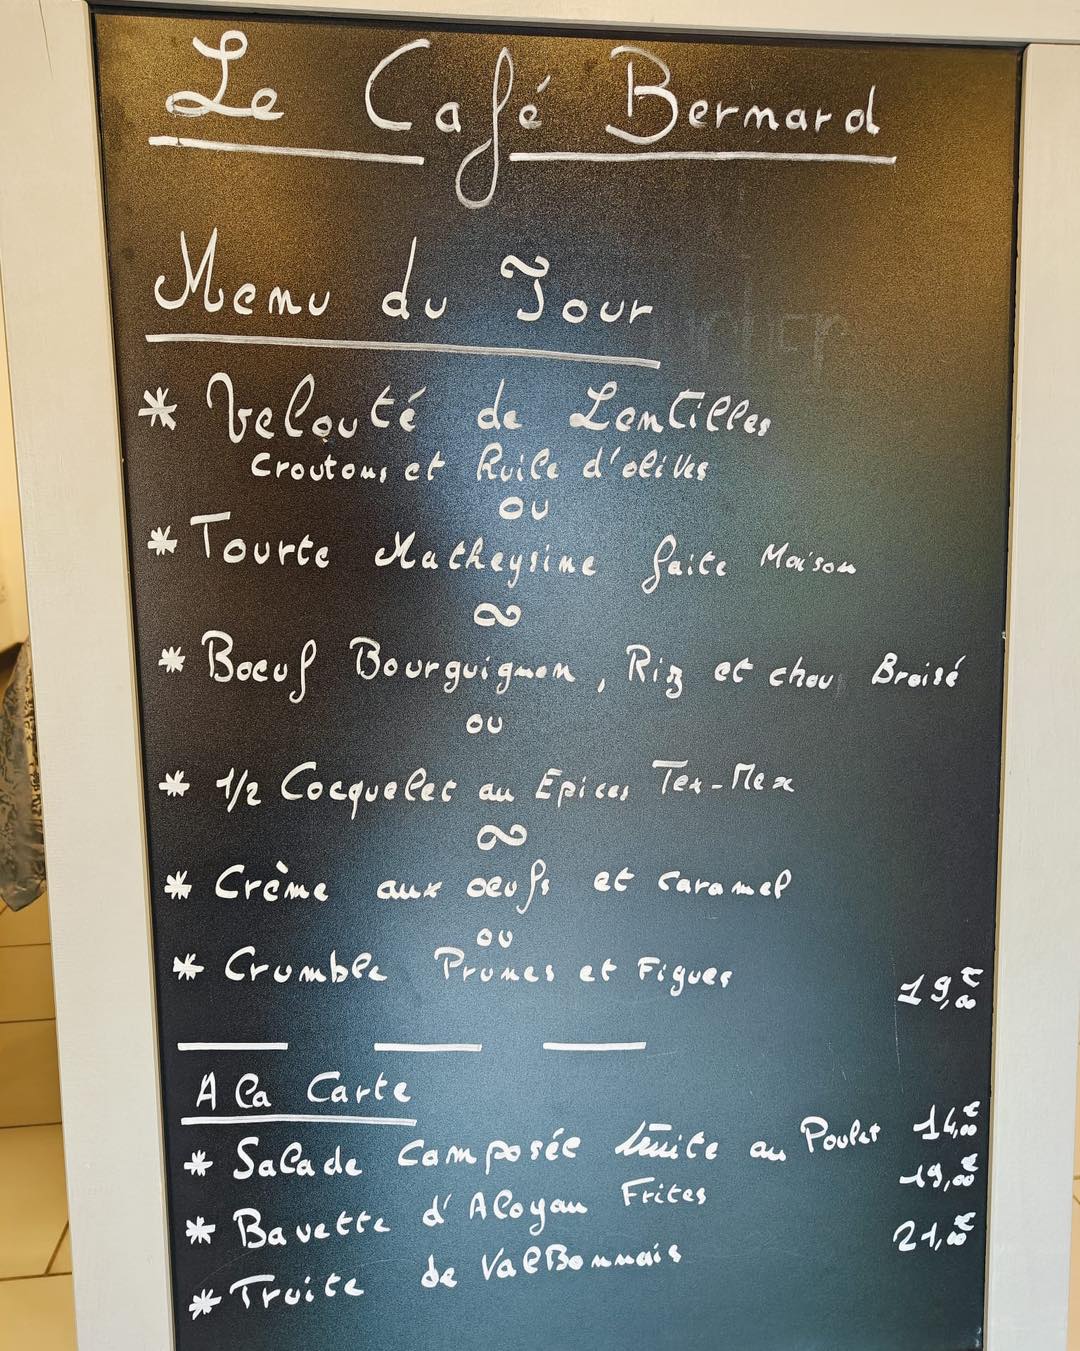 Le Café Bernard
Menu du Jour
* Velouté de Lentilles
Croutons et Huile d'olives
ou
* Tourte Matheysine faite Maison
~
* Boeuf Bourguignon, Riz et chou Braisé
ou
* 1/2 Cocquelet au Epices Tex-Mex
~
* Crème aux oeufs et caramel
ou
* Crumble Prunes et Figues
19,00€
A la Carte
* Salade Composée au Poulet 14,00€
* Bavette d'Aloyau Frites 19,00€
* Truite de ValBonnais 21,00€